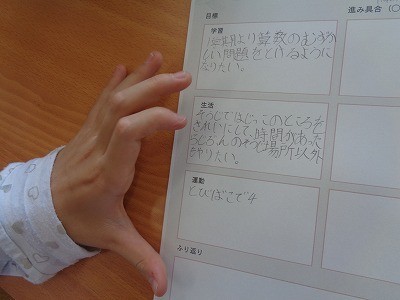 目標
進み具合(〇
学習
1学期より算数のむずか
しい問題をといるように
なりたい。
生活
そうじではじっこのところを
きれいにして、時間があった
ら、じぶんのそうじ場所以外
をやりたい。
運動
とびばこで4
ふり返り